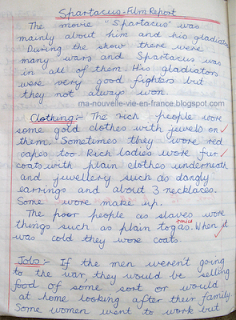 Spartacus - Film Report
The movie "Spartacus" was
mainly about him and his gladiators
During the show there were
many wars and Spartacus was
in all of them. His gladiators
were very good fighters but
they not always won.
ma-nouvelle-vie-en-france.blogspot.com
Clothing:- The rich people wore
some gold clothes with jewels on
them. Sometimes they wore red
capes too. Rich ladies wore fur
coats with plain clothes underneath
and jewellery such as dangly
earrings and about 3 necklaces.
Some wore make up.
The poor people as slaves wore
things such as plain togas. When it
was cold they wore coats.
Jobs:- If the men weren't going
to the war, they would be selling
food of some sort or would
at home looking after their family.
Some women went to work but